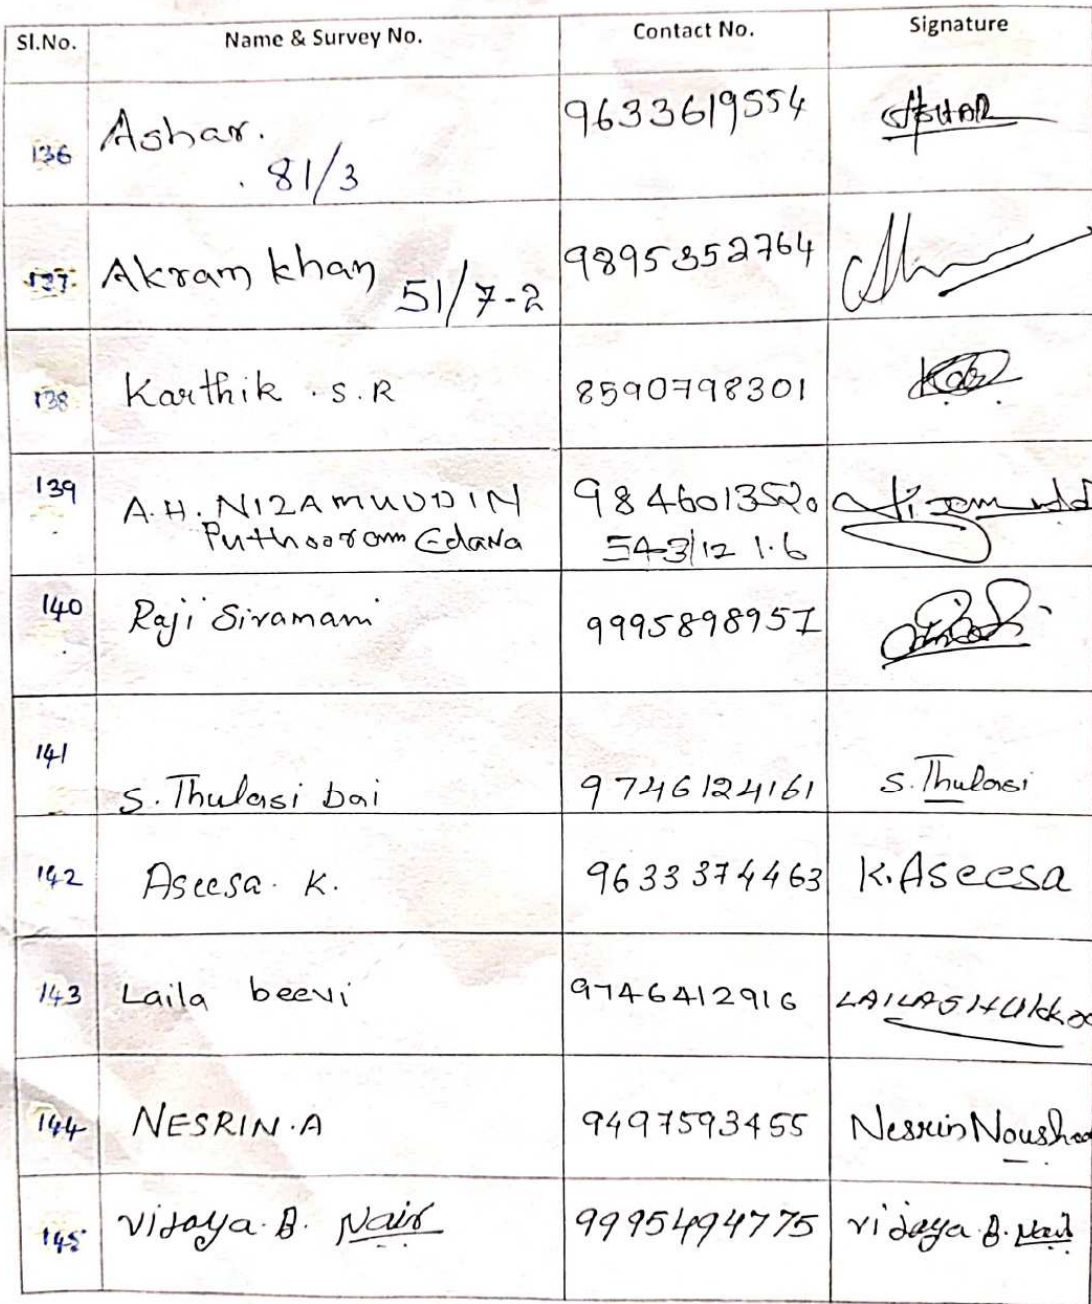 Sl.No. Name & Survey No. Contact No. Signature
136 Ashar. 9633619554 ASHAR
. 81/3
137 Akram khan 51/7-2 9895352764
138 Karthik . S. R 8590798301
139 A.H. NIZAMUUDIN 9846013520 Nizamudd
Puthooram Edava 543/12 1.6
140 Raji Sivamani 9995898957
141
S. Thulasi bai 9746124161 S. Thulasi
142 Aseesa. K. 9633374463 K. Aseesa
143 Laila beevi 9746412916 LAILASHUkkoo
144 NESRIN.A 9497593455 Nesrin Noushad
145 Vijaya. B. Nair 9995494775 Vijaya. B. Nair